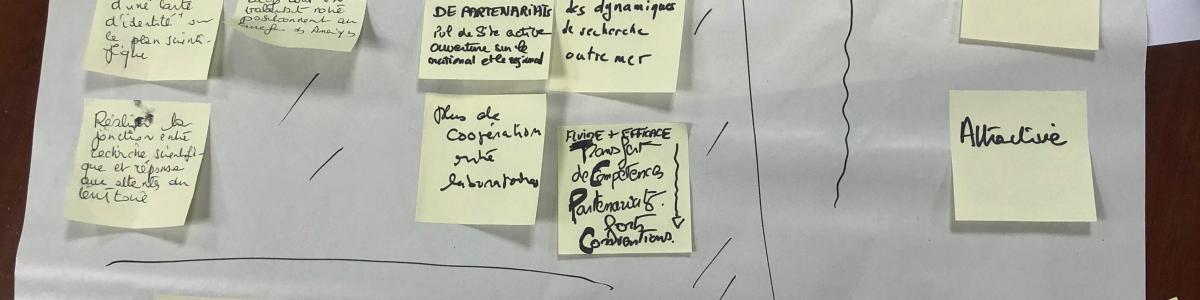 d'une carte
d'identité sur
le plan scienti-
fique
positionnent au
DE PARTENARIATS
Pol de Site active
ouverture sur le
national et le régional
des dynamiques
de recherche
outre mer
Réaliser la
jonction entre
recherche scientifi-
que et réponse
aux attentes du
territoire
plus de
Coopération
entre
laboratoires
FLUIDE + EFFICACE
Transfert
de Compétences
Partenariats
forts
Conventions.
Attractive